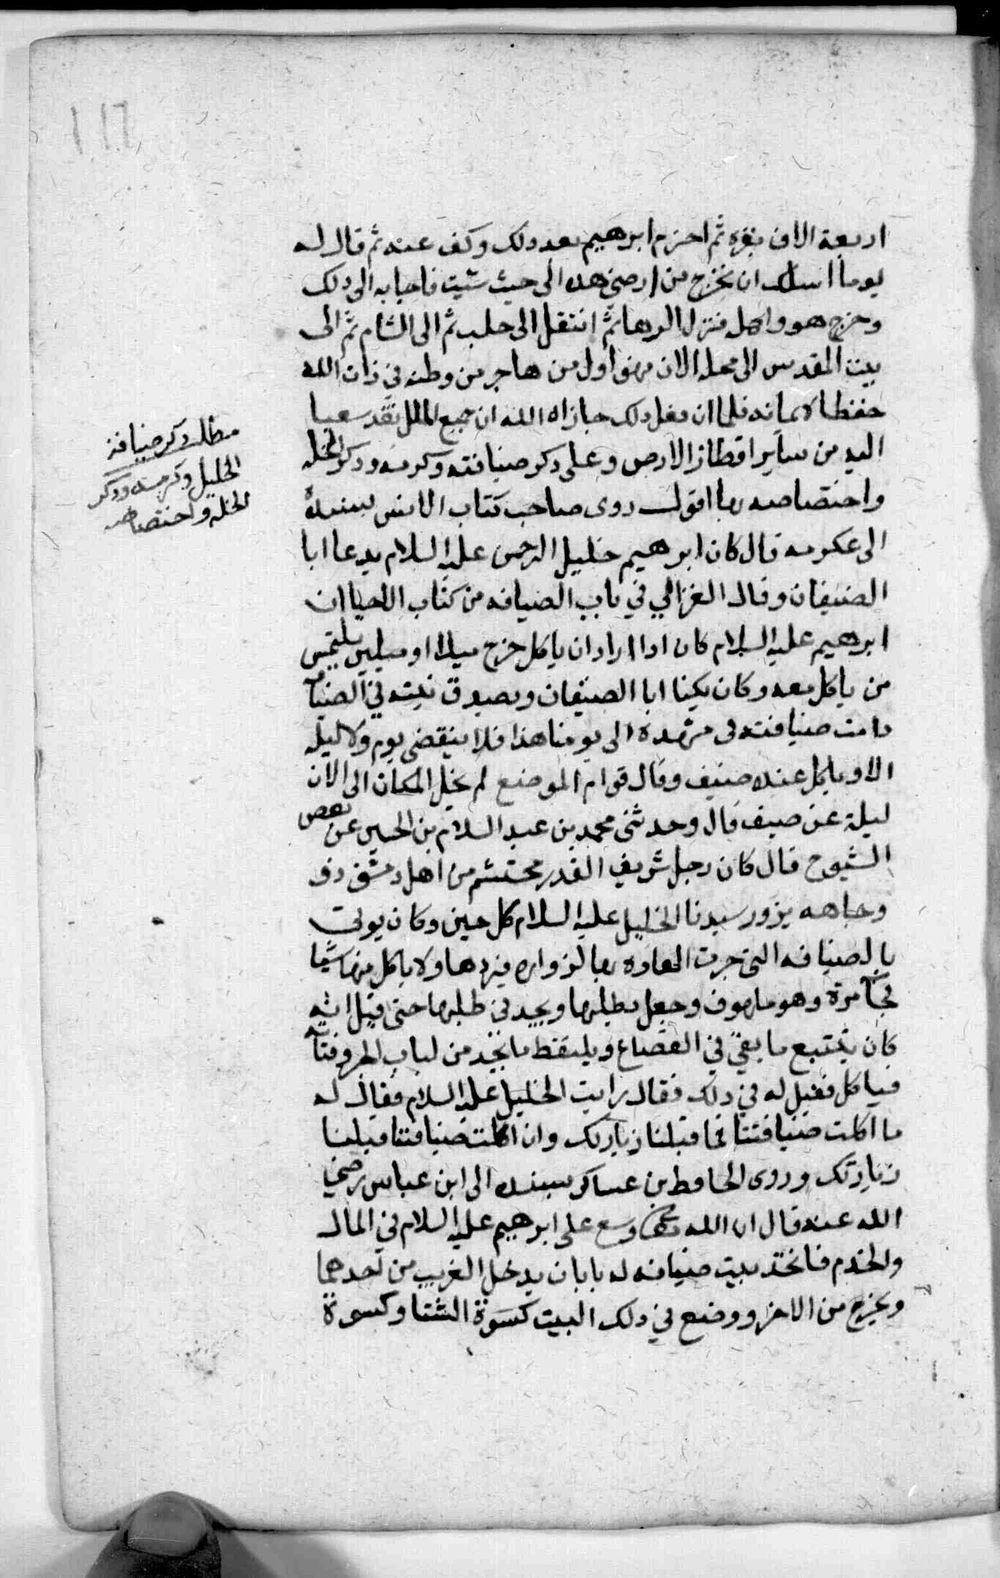 ١١٦
اربعة الاف بقره ثم احترم ابرهيم بعد ذلك وكف عنه ثم قال له
يوما اسلك ان تخرج من ارضي هذه الى حيث شيت فاجابه الى ذلك
وخرج هو واهله فنزل الرها ثم انتقل الى حلب ثم الى الشام ثم الى
بيت المقدس الى محله الان فهو اول من هاجر من وطنه في ذات الله
حفظا لايمانه فلما ان فعل ذلك جازاه الله ان جميع الملل تقد سعيا
اليه من ساير اقطار الارض وعلى ذكر ضيافته وكرمه وذكر الخله
واختصاصه بها اقول روى صاحب كتاب الانس بسنده
الى عكرمه قال كان ابرهيم خليل الرحمن عليه السلام يدعا ابا
الضيفان وقال الغزالي في باب الضيافه من كتاب الاحيا ان
ابرهيم عليه السلام كان اذا اراد ان ياكل خرج ميلا او ميلين يلتمس
من ياكل معه وكان يكنا ابا الضيفان وبصدق نيته في الضيافة
دامت ضيافته في مشهده الى يومنا هذا فلا ينقضي يوم ولا ليله
الا وياكل عنده ضيف وقال قوام الموضع لم يخل المكان الى الان
ليلة عن ضيف قال وحدثني محمد بن عبد السلام بن الحسين عن بعض
الشيوخ قال كان رجل شريف القدر محتشم من اهل دمشق ذو
وجاهه يزور سيدنا الخليل عليه السلام كل حين وكان يوتى
بالضيافه التي جرت العاده بها لزواره فيردها ولا ياكل منها شيا
فجآ مرة وهو ملهوف وجعل يطلبها ويجد في طلبها حتى قيل انه
كان يتتبع ما بقي في القصاع ويلتقط ما يجد من لباب الخبز وفتاته
فياكل فقيل له في ذلك فقال رايت الخليل عليه السلام فقال له
ما اكلت ضيافتنا فما قبلنا زيارتك وان اكلت ضيافتنا قبلنا
زيارتك وروى الحافظ بن عساكر بسنده الى ابن عباس رضي
الله عنه قال ان الله وسع على ابرهيم عليه السلام في المال
والخدم فاتخذ بيت ضيافه له بابان يدخل الغريب من احدهما
ويخرج من الاخر ووضع في ذلك البيت كسوة الشتا وكسوة
مطلب ذكر ضيافة
الخليل وكرمه وذكر
الخله واختصاصه